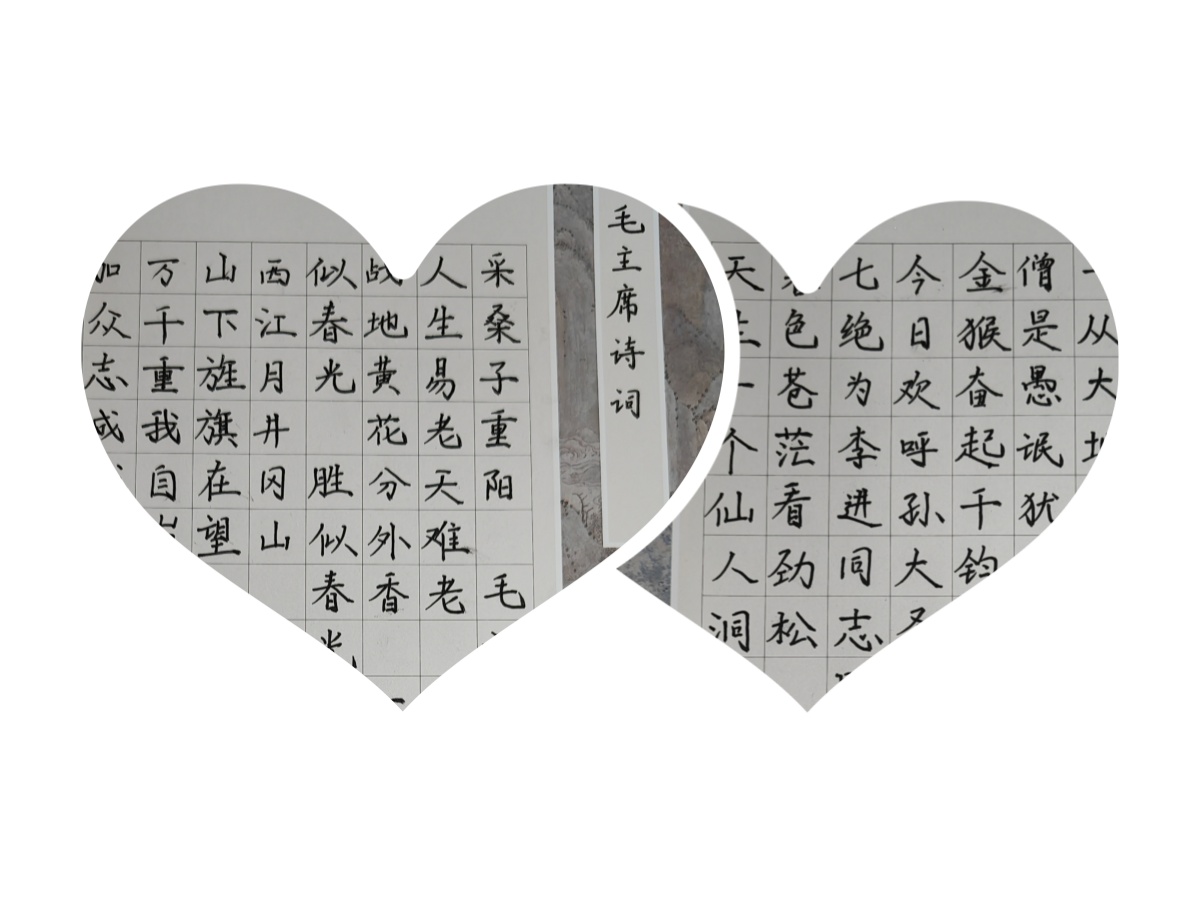 毛主席诗词
采桑子重阳 毛
人生易老天难老
战地黄花分外香
似春光 胜似春光
西江月井冈山
山下旌旗在望
万千重我自
加众志成
一从大
僧是愚氓犹
金猴奋起千钧
今日欢呼孙大
七绝为李进同志
色苍茫看劲松
天生一个仙人洞